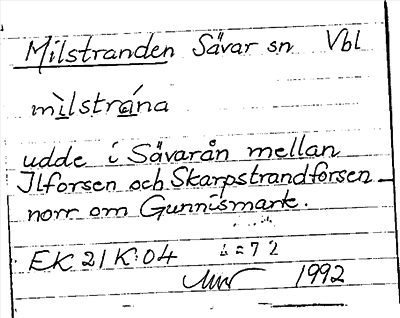 Milstranden Sävar sn Vbl
mìlstrána
udde i Sävarån mellan
Ilforsen och Skarpstrandforsen
norr om Gunnismark.
EK 21 K:04
1992